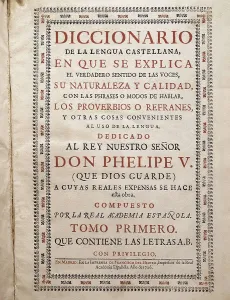 DICCIONARIO
DE LA LENGUA CASTELLANA,
EN QUE SE EXPLICA
EL VERDADERO SENTIDO DE LAS VOCES,
SU NATURALEZA Y CALIDAD,
CON LAS PHRASES O MODOS DE HABLAR,
LOS PROVERBIOS O REFRANES,
Y OTRAS COSAS CONVENIENTES
AL USO DE LA LENGUA.
DEDICADO
AL REY NUESTRO SEÑOR
DON PHELIPE V.
(QUE DIOS GUARDE)
A CUYAS REALES EXPENSAS SE HACE
esta obra.
COMPUESTO
POR LA REAL ACADEMIA ESPAÑOLA.
TOMO PRIMERO.
QUE CONTIENE LAS LETRAS A.B.
CON PRIVILEGIO.
EN MADRID. En la Imprenta de Francisco del Hierro, Impressor de la Real
Academia Española. Año de 1726.